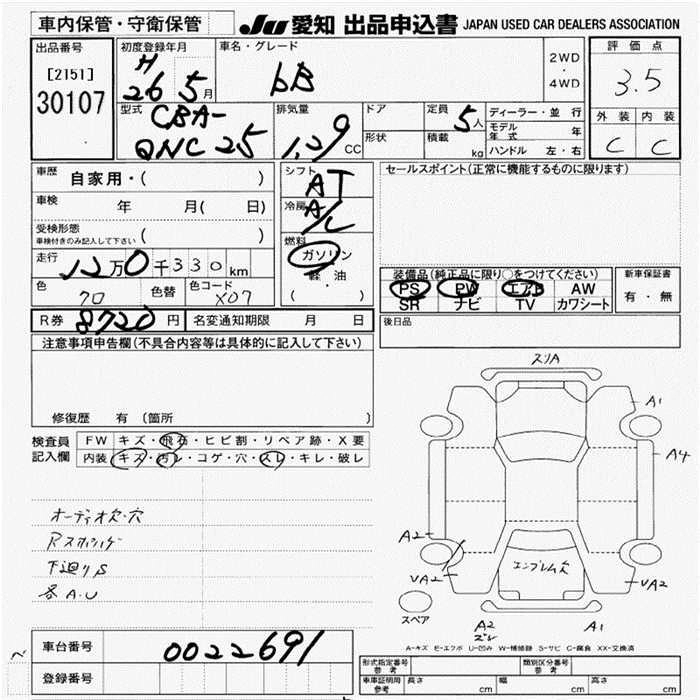 車内保管・守衛保管
JU 愛知 出品申込書 JAPAN USED CAR DEALERS ASSOCIATION
出品番号
[2151]
30107
初度登録年月
H
26 5月
車名・グレード
bB
2WD
・
4WD
評価点
3.5
外装 内装
C C
型式
CBA-
QNC25
排気量
1.29
CC
ドア
形状
定員
5人
積載
kg
ディーラー・並行
モデル年式 年
ハンドル 左・右
車歴
自家用・( )
車検
年 月( 日)
受検形態
車検付きのみ記入して下さい
( )
走行
12万0千330km
色
70
色替
色コード
X07
シフト
AT
冷房
A/C
燃料
ガソリン
軽・油
( )
セールスポイント(正常に機能するものに限ります)
装備品(純正品に限り○をつけてください)
PS PW エアB AW
SR ナビ TV カワシート
新車保証書
有・無
後日品
R券 8720円
名変通知期限 月 日
注意事項申告欄(不具合内容等は具体的に記入して下さい)
修復歴 有 (箇所 )
検査員
記入欄
FW キズ・飛石・ヒビ割・リペア跡・X要
内装 キズ・汚レ・コゲ・穴・スレ・キレ・破レ
オーディオ欠・穴
下廻りS
各A.U
スリA
A1
A4
A2
VA2
エンブレム欠
VA2
スペア
A2
ズレ
A1
A-キズ E-エクボ U-凹み W-補修跡 S-サビ C-腐食 XX-交換済
車台番号
0022691
登録番号
形式指定番号
参考
類別区分番号
参考
車庫証明用
参考
長さ cm
幅 cm
高さ cm